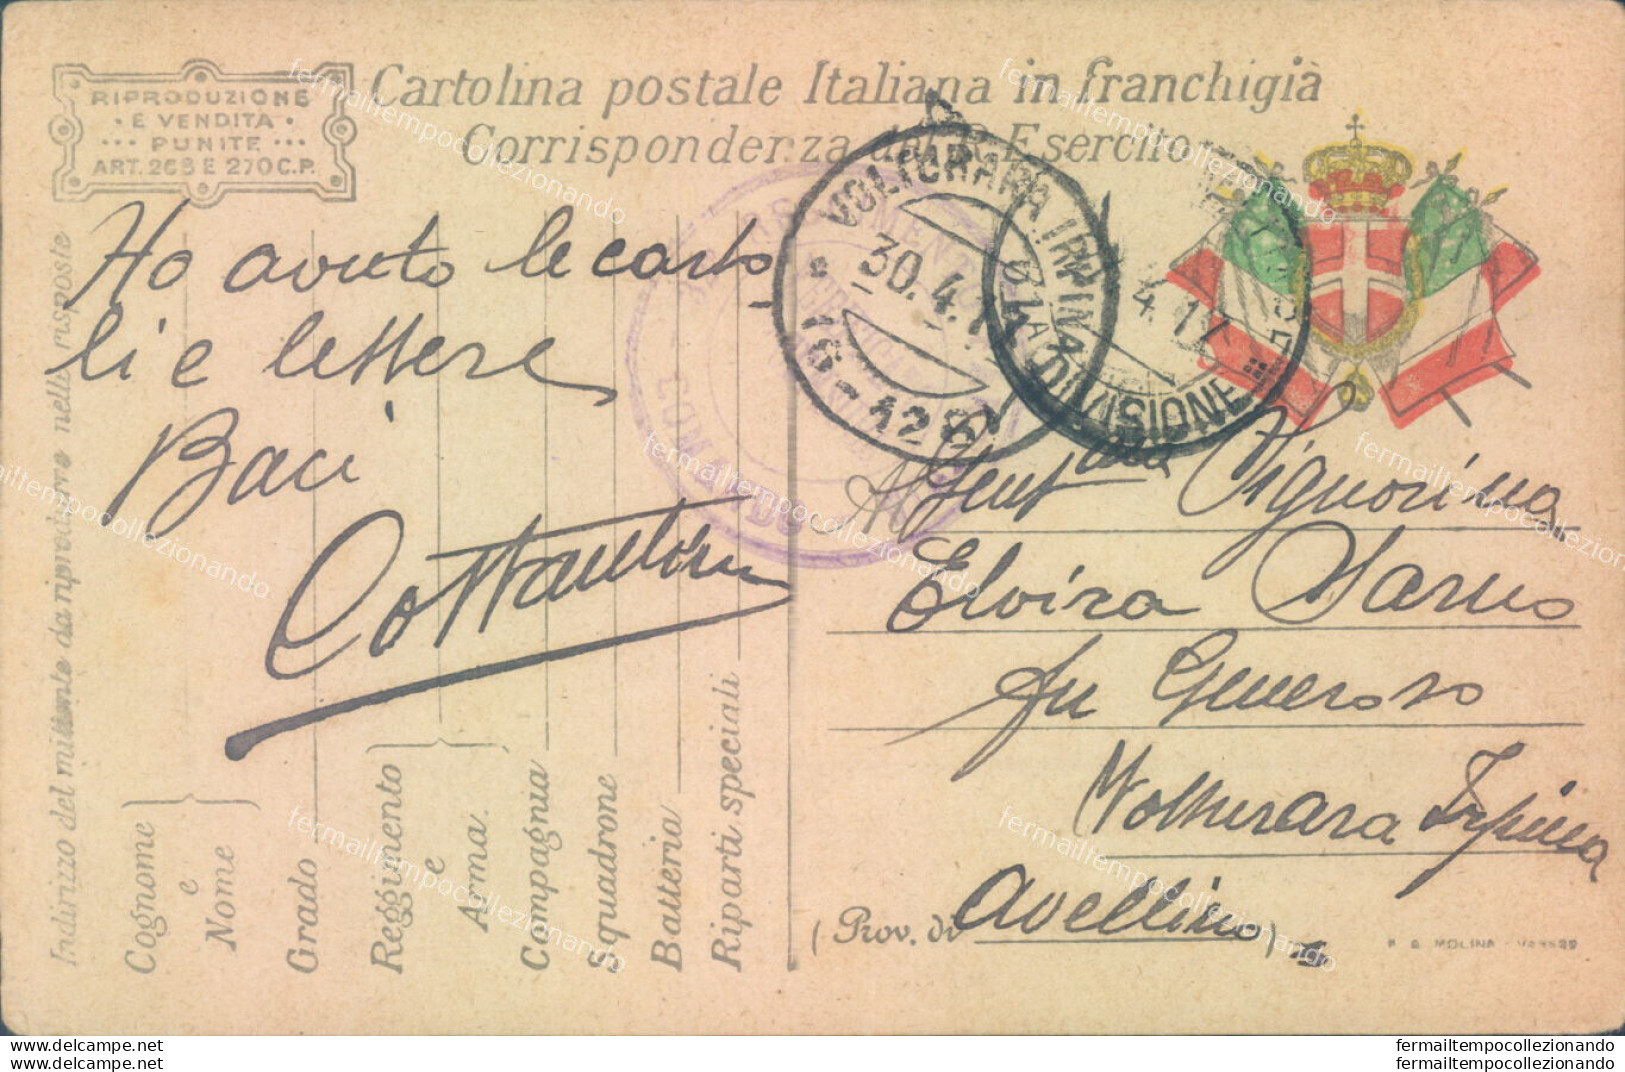 RIPRODUZIONE
E VENDITA
PUNITE
ART. 268 E 270 C.P.
Cartolina postale Italiana in franchigià
Corrispondenza del R. Esercito
Ho avuto le carto
li e lettere
Baci
VOLTURARA IRPINA
30.4.1
16-12 S
DIVISIONE
4.17
COMANDO
Gent.ma Signorina
Elvira Sarno
fu Generoso
Volturara Irpina
(Prov. di Avellino)
Indirizzo del mittente da riprodurre nelle risposte
Cognome
e
Nome
Grado
Reggimento
e
Arma
Compagnia
Squadrone
Batteria
Riparti speciali
MOLINA - VARESE
fermailtempocollezionando
fermailtempocollezionando
fermailtempocollezionando
fermailtempocollezionando